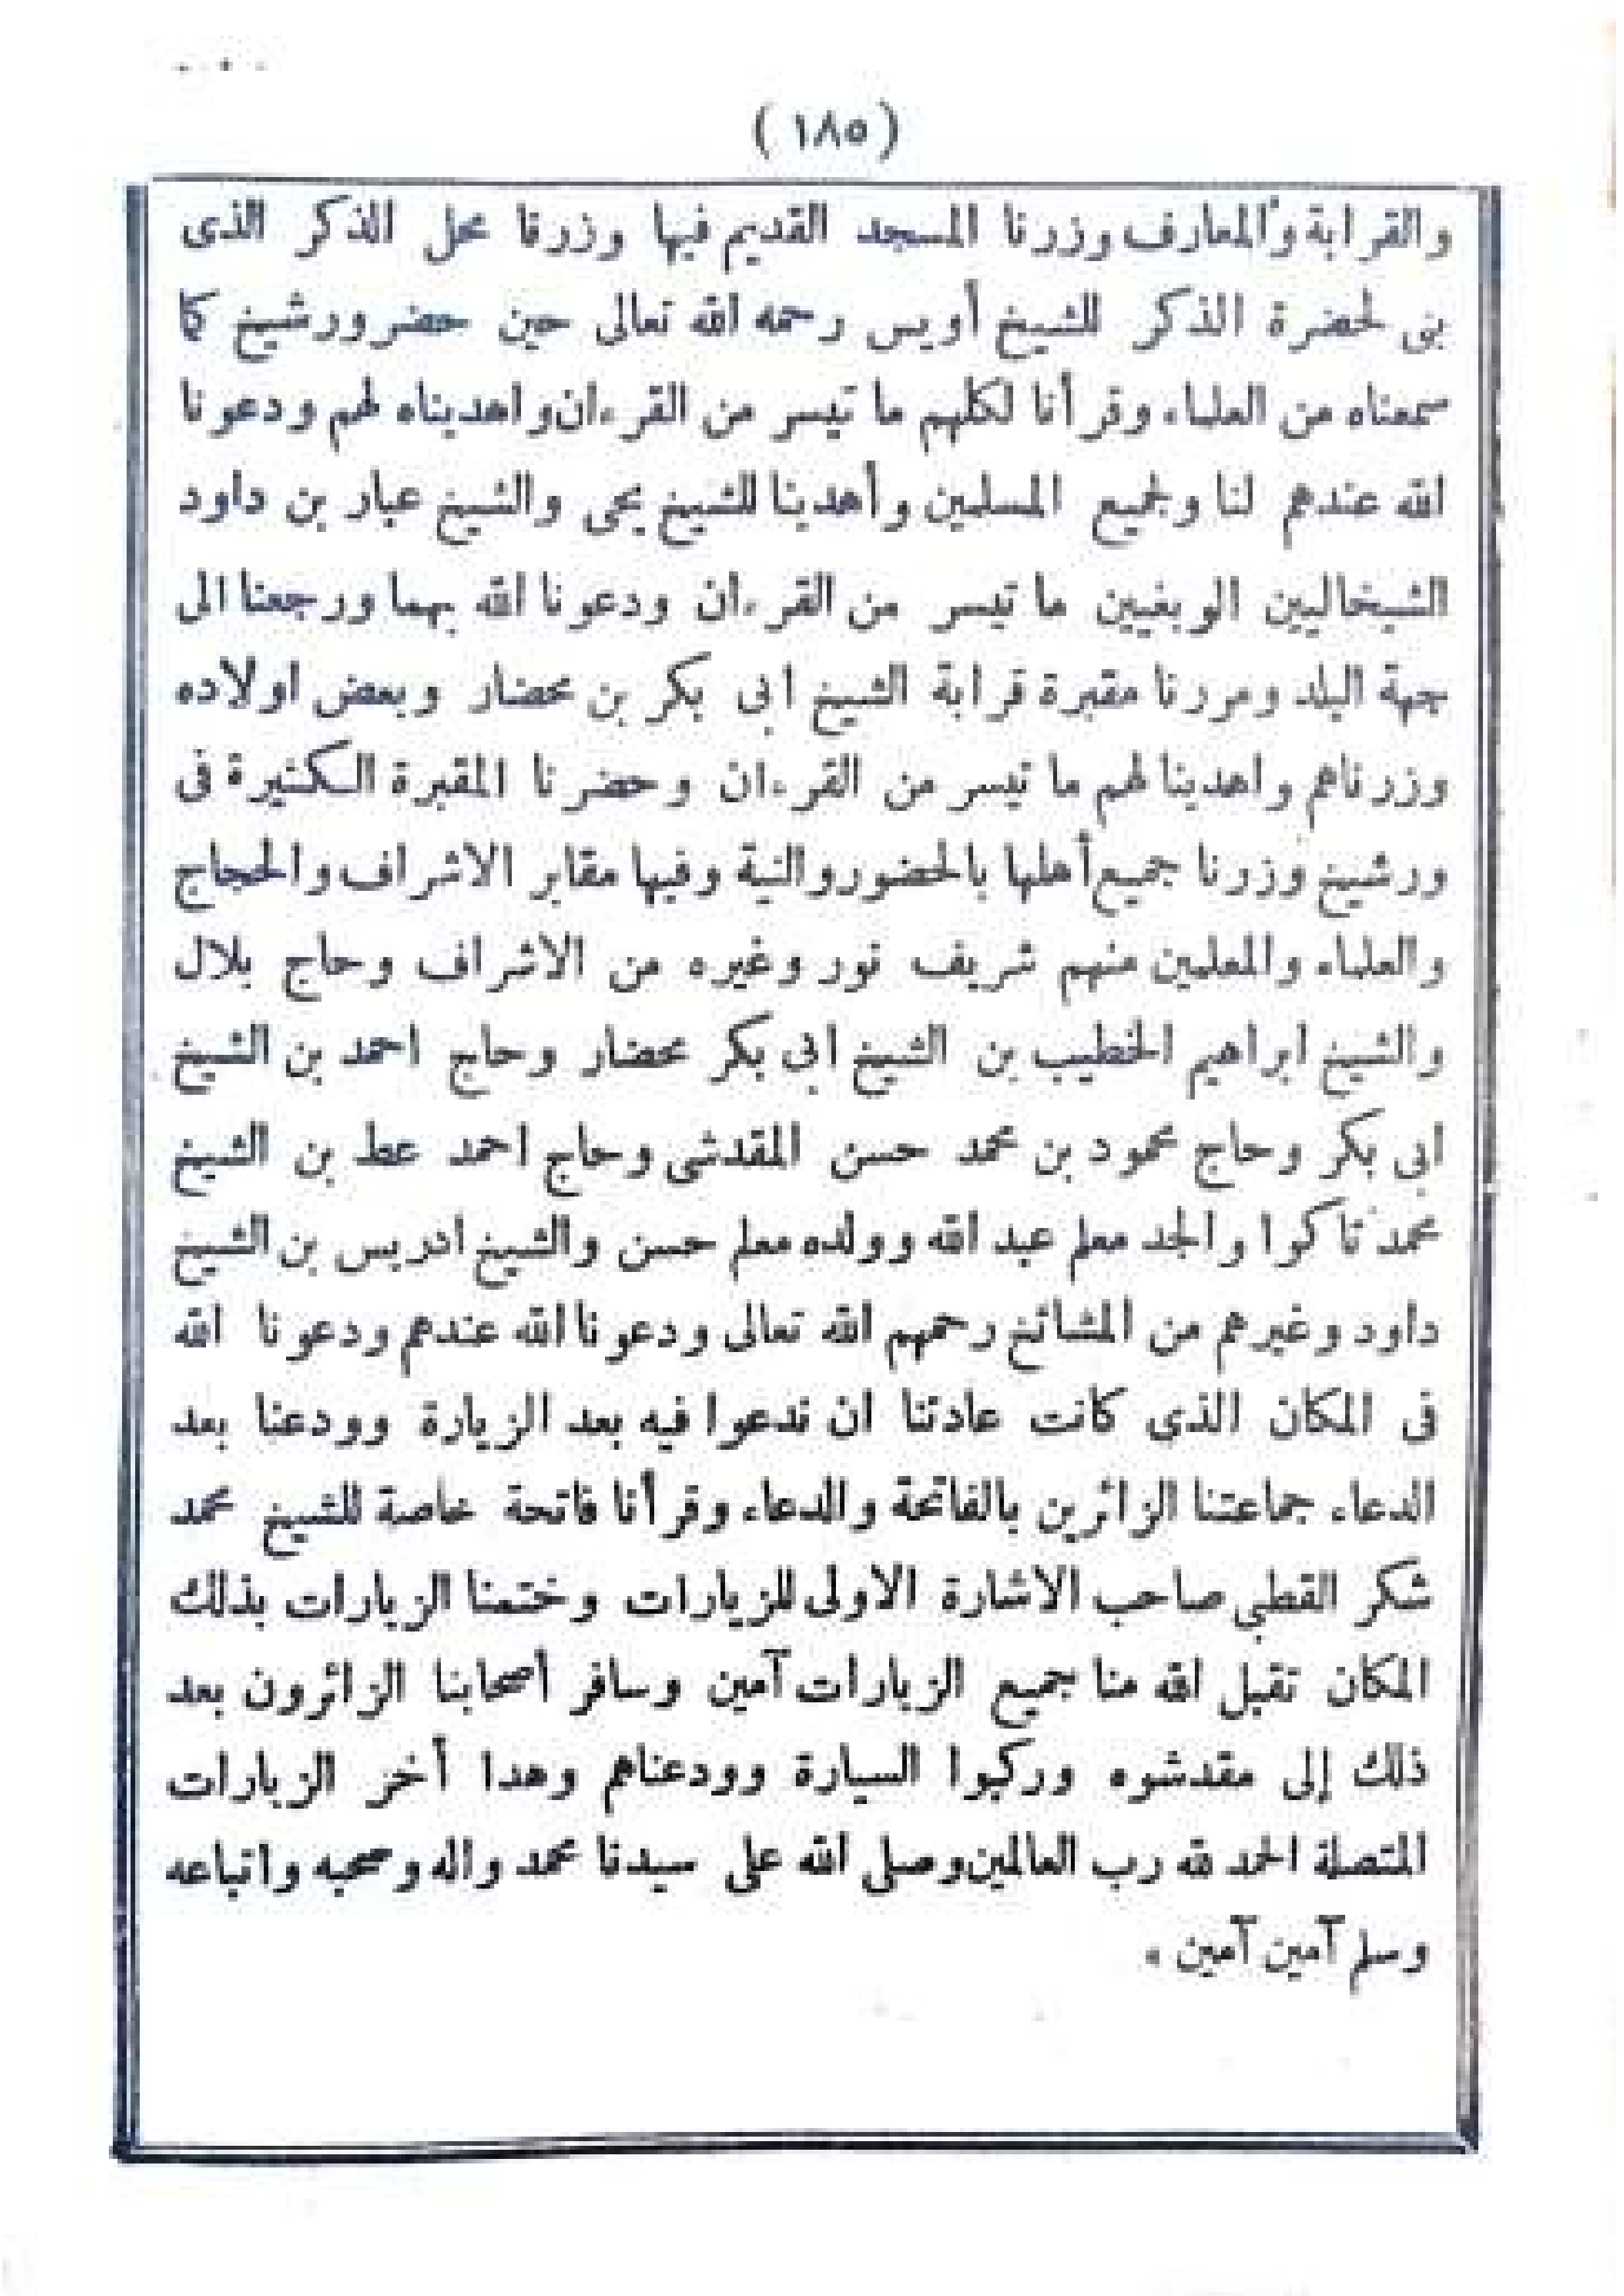 (١٨٥)
والقرابة والمعارف وزرنا المسجد القديم فيها وزرنا محل الذكر الذى
بنى لحضرة الذكر للشيخ أويس رحمه الله تعالى حين حضر ورشيخ كما
سمعناه من العلماء وقرأنا لكلهم ما تيسر من القرءان واهديناه لهم ودعونا
الله عندهم لنا ولجميع المسلمين وأهدينا للشيخ يحى والشيخ عبار بن داود
الشيخاليين الوبغيين ما تيسر من القرءان ودعونا الله بهما ورجعنا الى
جهة البلد ومررنا مقبرة قرابة الشيخ ابى بكر بن محضار وبعض اولاده
وزرناهم واهدينا لهم ما تيسر من القرءان وحضرنا المقبرة الكثيرة فى
ورشيخ وزرنا جميع أهلها بالحضور والنية وفيها مقابر الاشراف والحجاج
والعلماء والمعلمين منهم شريف نور وغيره من الاشراف وحاج بلال
والشيخ ابراهيم الخطيب بن الشيخ ابى بكر محضار وحاج احمد بن الشيخ
ابى بكر وحاج محمود بن محمد حسن المقدشى وحاج احمد عط بن الشيخ
محمد تاكوا والجد معلم عبد الله وولده معلم حسن والشيخ ادريس بن الشيخ
داود وغيرهم من المشائخ رحمهم الله تعالى ودعونا الله عندهم ودعونا الله
فى المكان الذى كانت عادتنا ان ندعوا فيه بعد الزيارة وودعنا بعد
الدعاء جماعتنا الزائرين بالفاتحة والدعاء وقرأنا فاتحة خاصة للشيخ محمد
شكر القطبي صاحب الاشارة الاولى للزيارات وختمنا الزيارات بذلك
المكان تقبل الله منا جميع الزيارات آمين وسافر أصحابنا الزائرون بعد
ذلك إلى مقدشوه وركبوا السيارة وودعناهم وهدا أخر الزيارات
المتصلة الحمد لله رب العالمين وصلى الله على سيدنا محمد واله وصحبه واتباعه
وسلم آمين آمين .